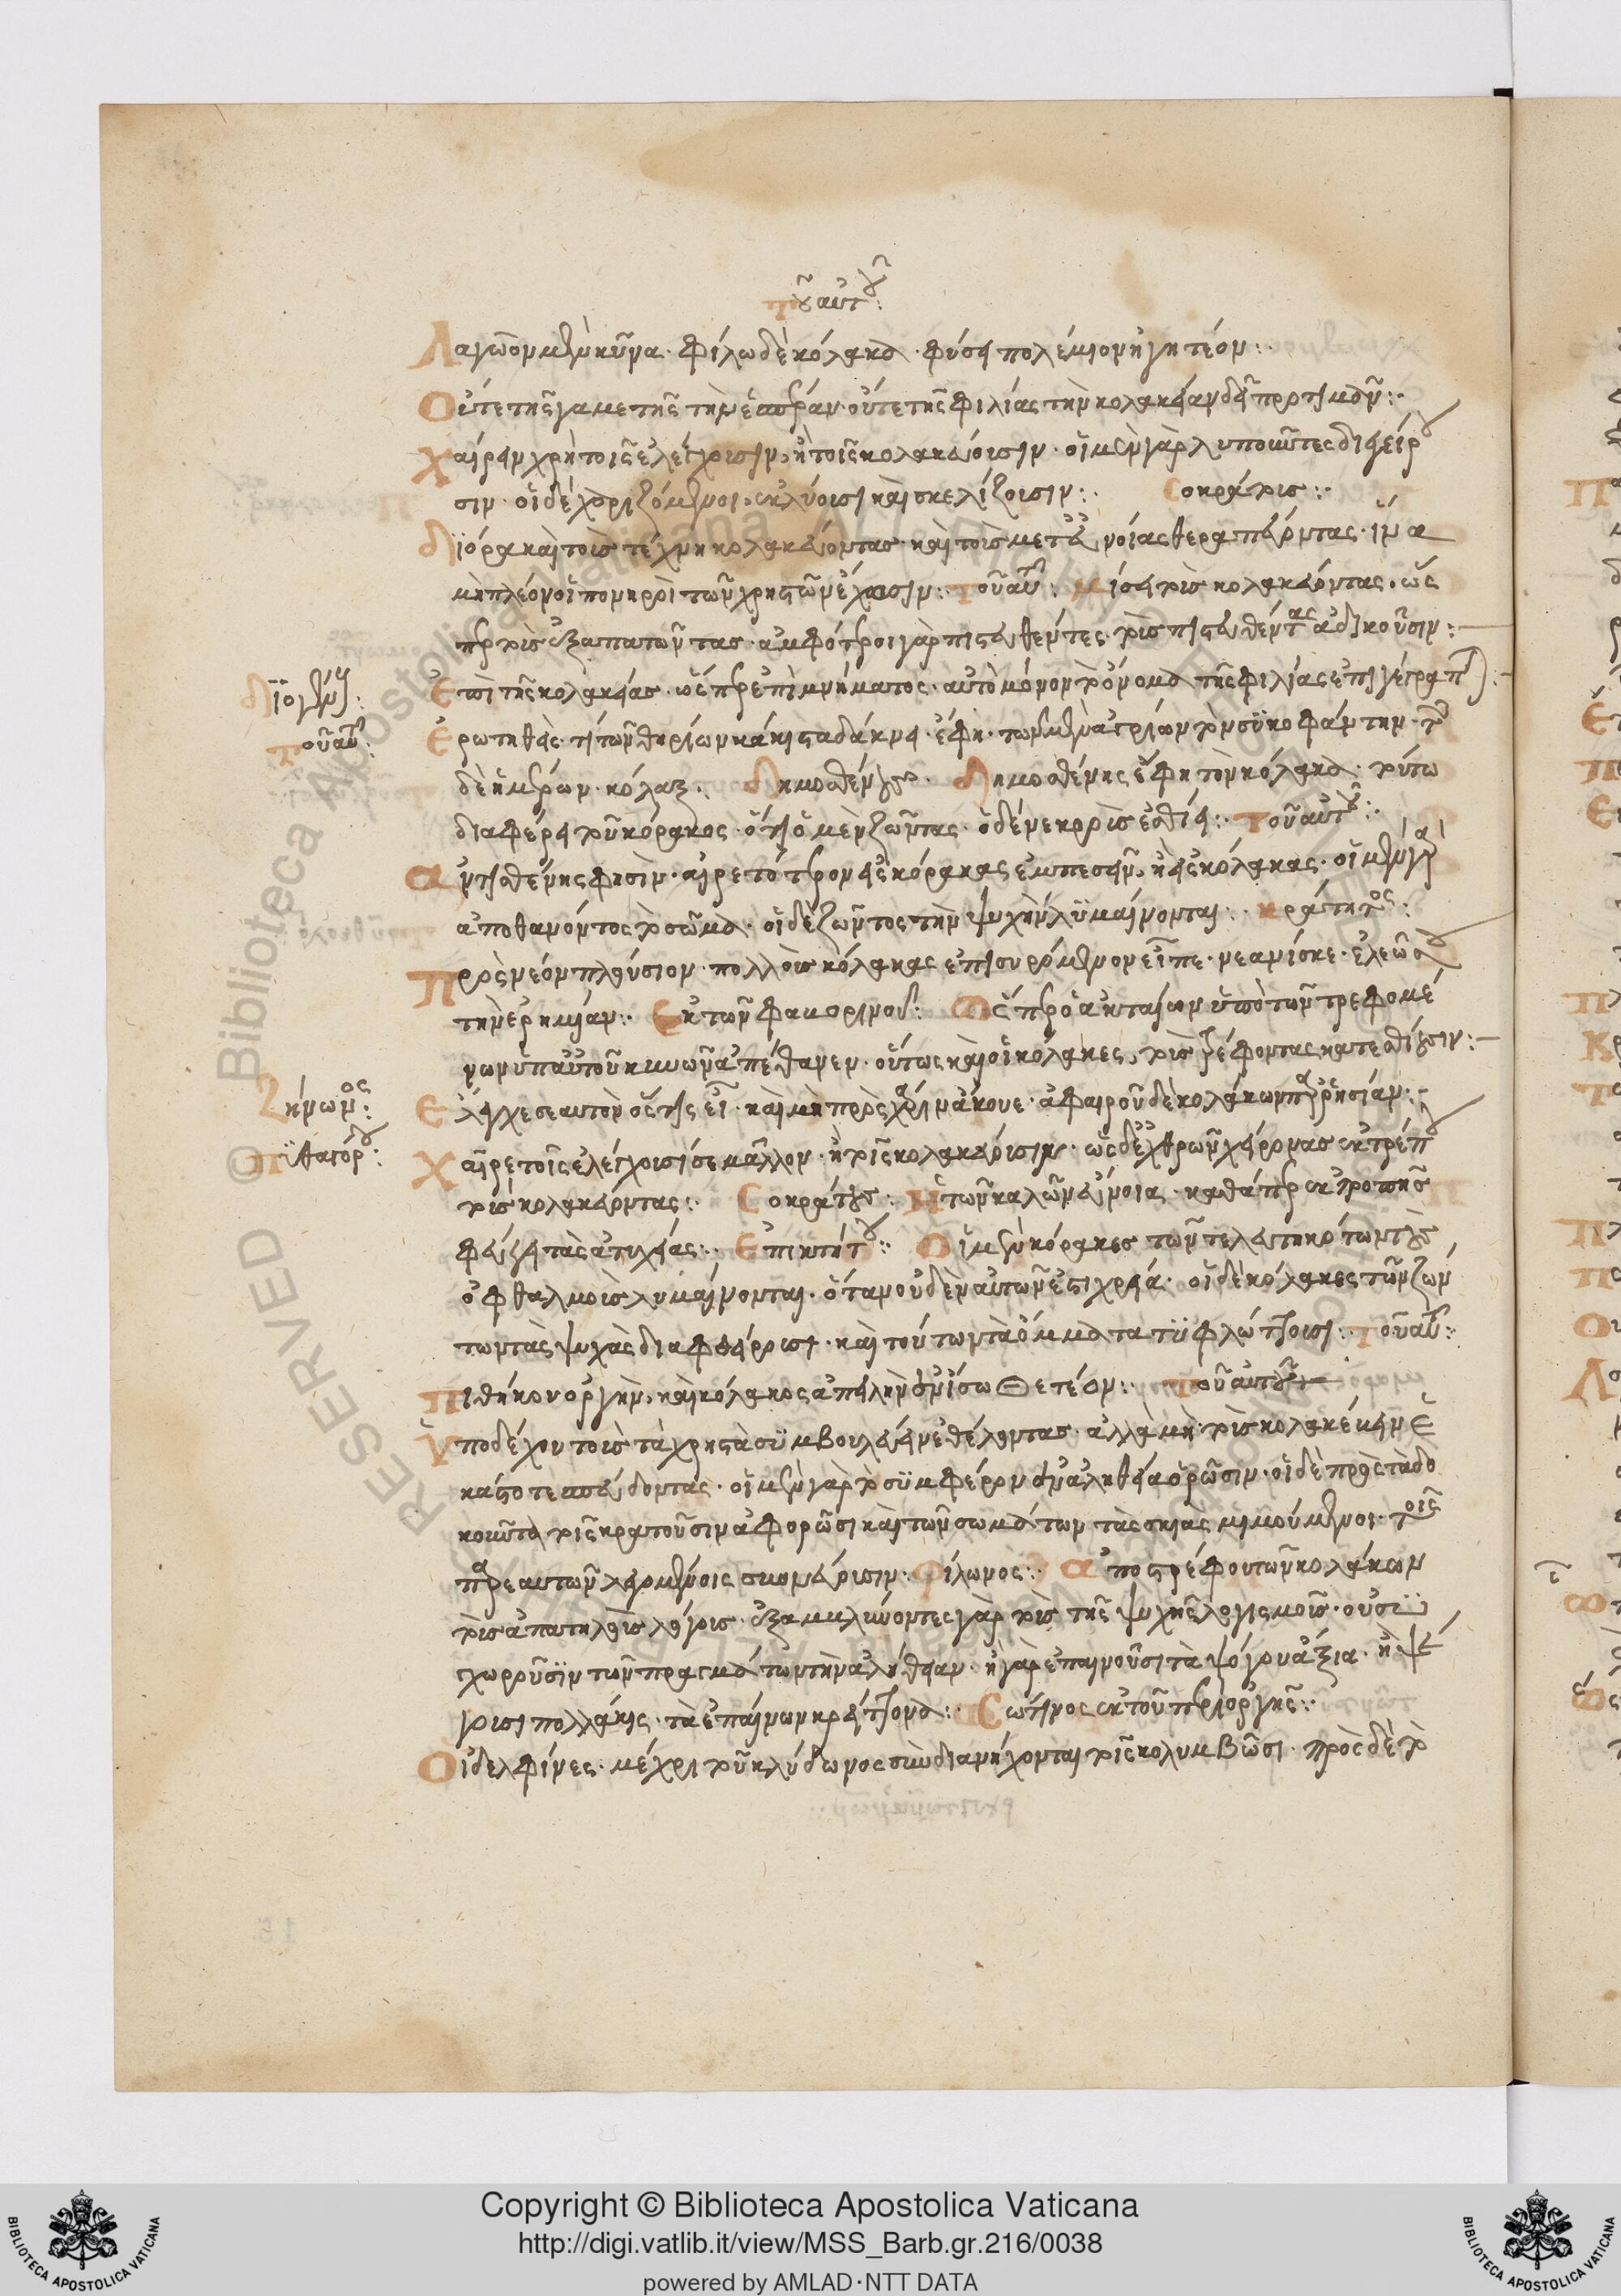 τοῦ αὐτοῦ:
Λαγωὸν μὲν κῦνα. φίλω δὲ κόλακα. φύσει πολέμιον ἡγητέον:
Οὔτε τῆς γαμετῆς τὴν ἑταίραν. οὔτε τῆς φιλίας τὴν κολακείαν δεῖ προτιμᾶν:
Χαίρειν χρὴ τοῖς ἐλέγχουσιν, ἢ τοῖς κολακεύουσιν. οἱ μὲν γὰρ λυποῦντες διεγείρου
σιν. οἱ δὲ χαριζόμενοι, ἐκλύουσι καὶ σκελίζουσιν: Σωκράτους:
Διόρα καὶ τοὺς τέχνη κολακεύοντας. καὶ τοὺς μετ' εὐνοίας θεραπεύοντας. ἵνα
μὴ πλέον οἱ πονηροὶ τῶν χρηστῶν ἔχωσιν: τοῦ αὐτοῦ: μίσει τοὺς κολακεύοντας. ὥς
περ τοὺς ἐξαπατῶντας. ἀμφότεροι γὰρ πιστευθέντες. τοὺς πιστευθέντας ἀδικοῦσιν:
Διογένους: Ἐπὶ τῆς κολακείας. ὥσπερ ἐπὶ μνήματος. αὐτὸ μόνον τὸ ὄνομα τῆς φιλίας ἐπιγέγραπται:
τοῦ αὐτοῦ: Ἐρωτηθεὶς. τί τῶν θηρίων κάκιστα δάκνει. ἔφη. τῶν μὲν ἀγρίων τὸν συκοφάντην. τῶν
δὲ ἡμέρων. κόλαξ. Δημοσθένους. Δημοσθένης ἔφη τὸν κόλακα. τούτω
διαφέρει τοῦ κόρακος. ὅτι ὁ μὲν ζῶντας. ὁ δὲ νεκροὺς ἐσθίει: Τοῦ αὐτοῦ:
Ἀντισθένης φησὶν. αἱρετότερον εἰς κόρακας ἐμπεσεῖν, ἢ εἰς κόλακας. οἱ μὲν γὰρ
ἀποθανόντος τὸ σῶμα. οἱ δὲ ζῶντος τὴν ψυχὴν λυμαίνονται: κράτητος:
Πρὸς νέον πλούσιον. πολλοὺς κόλακας ἐπισυρόμενον εἶπε. νεανίσκε. ἐλεῶ σου
τὴν ἐρημίαν: Ἐκ τῶν Φαβωρίνου: Ὥσπερ ὁ ἀκταίων ὑπὸ τῶν τρεφομέ
νων ὑπ' αὐτοῦ κυνῶν ἀπέθανεν. οὕτως καὶ οἱ κόλακες, τοὺς τρέφοντας κατεσθίουσιν:
Ζήνωνος: Ἔλεγχε σεαυτὸν ὅστις εἶ. καὶ μὴ πρὸς χάριν ἄκουε. ἀφαιροῦ δὲ κολάκων παρρησίαν:
Πυθαγόρου: Χαῖρε τοῖς ἐλέγχουσί σε μᾶλλον. ἢ τοῖς κολακεύουσιν. ὡς δ' ἐχθρῶν χείρονας ἐκτρέπου
τοὺς κολακεύοντας: Σωκράτους: Ἡ τῶν καλῶν εὔνοια. καθάπερ ἐκ προπης
φεύγει τὰς ἀτυχίας: Ἐπικτήτου: Οἱ μὲν κόρακες τῶν τελευτηκότων τοὺς
ὀφθαλμοὺς λυμαίνονται. ὅταν οὐδὲν αὐτῶν ἐστι χρεία. οἱ δὲ κόλακες τῶν ζών
των τὰς ψυχὰς διαφθείρουσι. καὶ τούτων τὰ ὄμματα τυφλώττουσι: Τοῦ αὐτοῦ:
Πιθήκου ὀργὴν, καὶ κόλακος ἀπειλὴν ἐν ἴσω θετέον: τοῦ αὐτοῦ
Ὑποδέχου τοὺς τὰ χρηστὰ συμβουλεύειν ἐθέλοντας. ἀλλὰ μὴ τοὺς κολακεύειν ἑ
κάστοτε σπεύδοντας. οἱ μὲν γὰρ τὸ συμφέρον ἐν ἀληθεία ὁρῶσιν. οἱ δὲ πρὸς τὰ δο
κοῦντα τοῖς κρατοῦσιν ἀφορῶσι καὶ τῶν σωμάτων τὰς σκιὰς μιμούμενοι. τοῖς
παρ' ἑαυτῶν λεγομένοις συνομεύουσιν. Φίλωνος: Ἀποστρέφου τῶν κολάκων
τοὺς ἀπατηλοὺς λόγους. ἐξαμβλύνοντες γὰρ τοὺς τῆς ψυχῆς λογισμοὺς. οὐ συγ
χωροῦσιν τῶν πραγμάτων τὴν ἀλήθειαν. ἢ γὰρ ἐπαινοῦσι τὰ ψόγου ἄξια. ἢ ψέ
γουσι πολλάκις. τὰ ἐπαίνων κρείττονα: Σωτίωνος ἐκ τοῦ περὶ ὀργῆς:
Οἱ δελφῖνες. μέχρι τοῦ κλύδωνος συνδιανήχονται τοῖς κολυμβῶσι. πρὸς δὲ τὸ
Copyright © Biblioteca Apostolica Vaticana
http://digi.vatlib.it/view/MSS_Barb.gr.216/0038
powered by AMLAD·NTT DATA